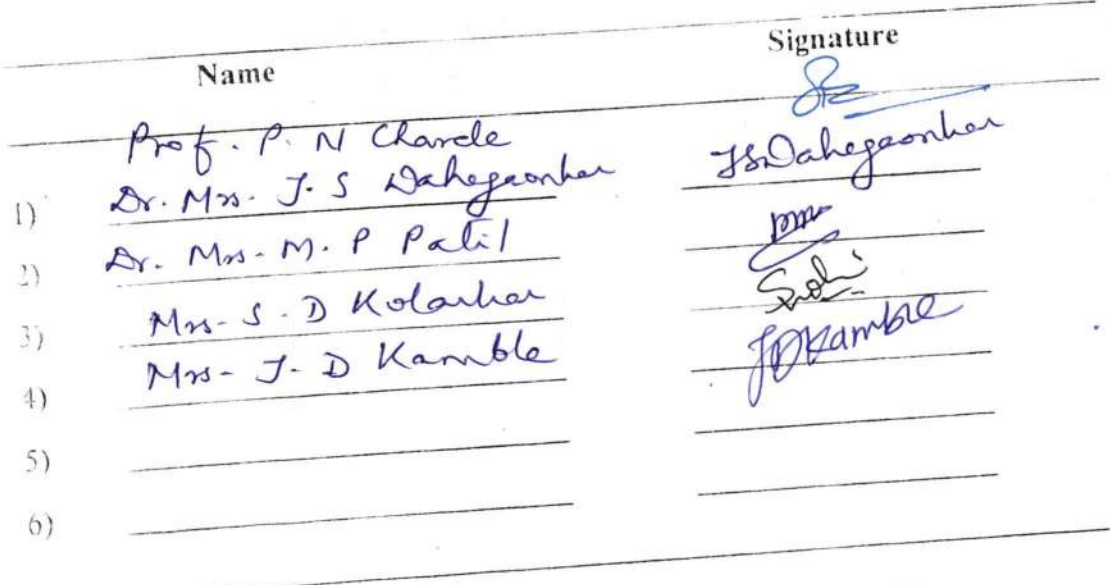 Name Signature
Prof. P. N Charde
1) Dr. Mrs. J. S Dahegaonkar JSDahegaonkar
2) Dr. Mrs. M. P Patil
3) Mrs. S. D Kolarkar
4) Mrs. J. D Kamble JDKamble
5)
6)